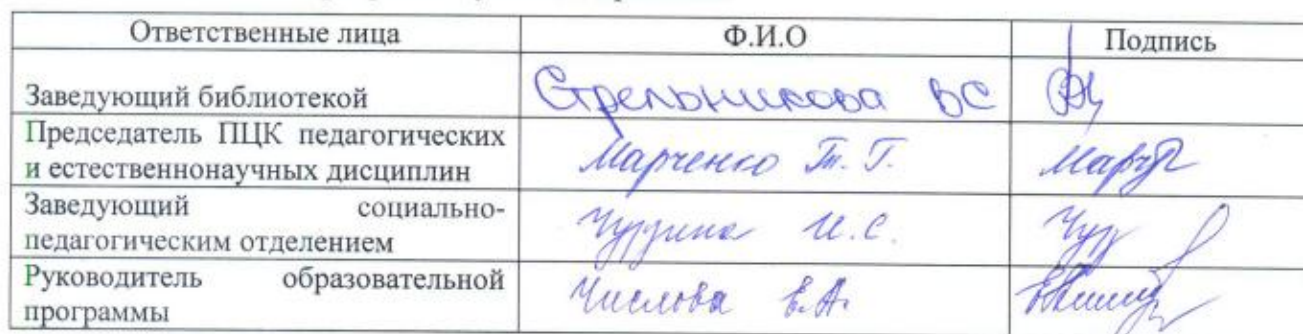 Ответственные лица Ф.И.О Подпись
Заведующий библиотекой Стрельникова ВС
Председатель ПЦК педагогических
и естественнонаучных дисциплин Марченко Т. Г.
Заведующий социально-
педагогическим отделением И.С.
Руководитель образовательной
программы Числова В.А.